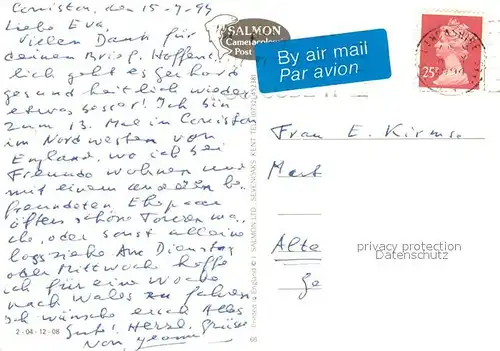 Coniston, den 15-7-94
Liebe Eva,
Vielen Dank für
deinen Brief. Hoffent-
lich geht es Gerhard
gesundheitlich wieder
etwas besser! Ich bin
zum 13. Mal in Coniston
im Nordwesten von
England, wo ich bei
Freunde wohnen und
mit einem anderen be-
freundeten Ehepaar
öfters schöne Touren ma-
che, oder sonst alleine
losziehe. Am Dienstag
oder Mittwoch hoffe
ich für eine Woche
nach Wales zu fahren
Ich wünsche euch Alles
Gute! Herzl. Grüsse
Von
2-04-12-08
SALMON
Cameracolour
Post
By air mail
Par avion
25
Frau E. Kirmse
Alte
privacy protection
Datenschutz
Ge
Printed in England © J. SALMON LTD. SEVENOAKS KENT TEL: 0732 452381